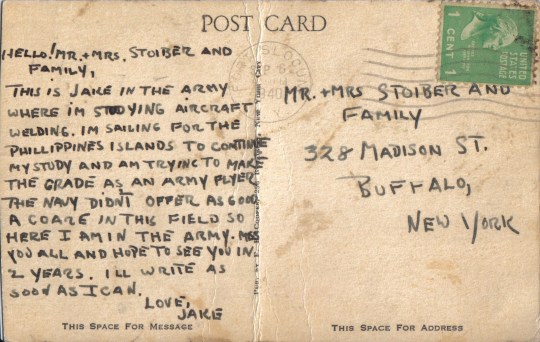 POST CARD
HELLO! MR. + MRS. STOIBER AND
FAMILY,
THIS IS JAKE IN THE ARMY
WHERE IM STUDYING AIRCRAFT
WELDING. IM SAILING FOR THE
PHILLIPPINES ISLANDS TO CONTINUE
MY STUDY AND AM TRYING TO MAKE
THE GRADE AS AN ARMY FLYER
THE NAVY DIDN'T OFFER AS GOOD
A COARE IN THIS FIELD SO
HERE I AM IN THE ARMY. MISS
YOU ALL AND HOPE TO SEE YOU IN
2 YEARS. I'LL WRITE AS
SOON AS I CAN.
LOVE,
JAKE
THIS SPACE FOR MESSAGE
1 CENT 1
UNITED
STATES
POSTAGE
MR. + MRS STOIBER AND
FAMILY
328 MADISON ST.
BUFFALO,
NEW YORK
THIS SPACE FOR ADDRESS